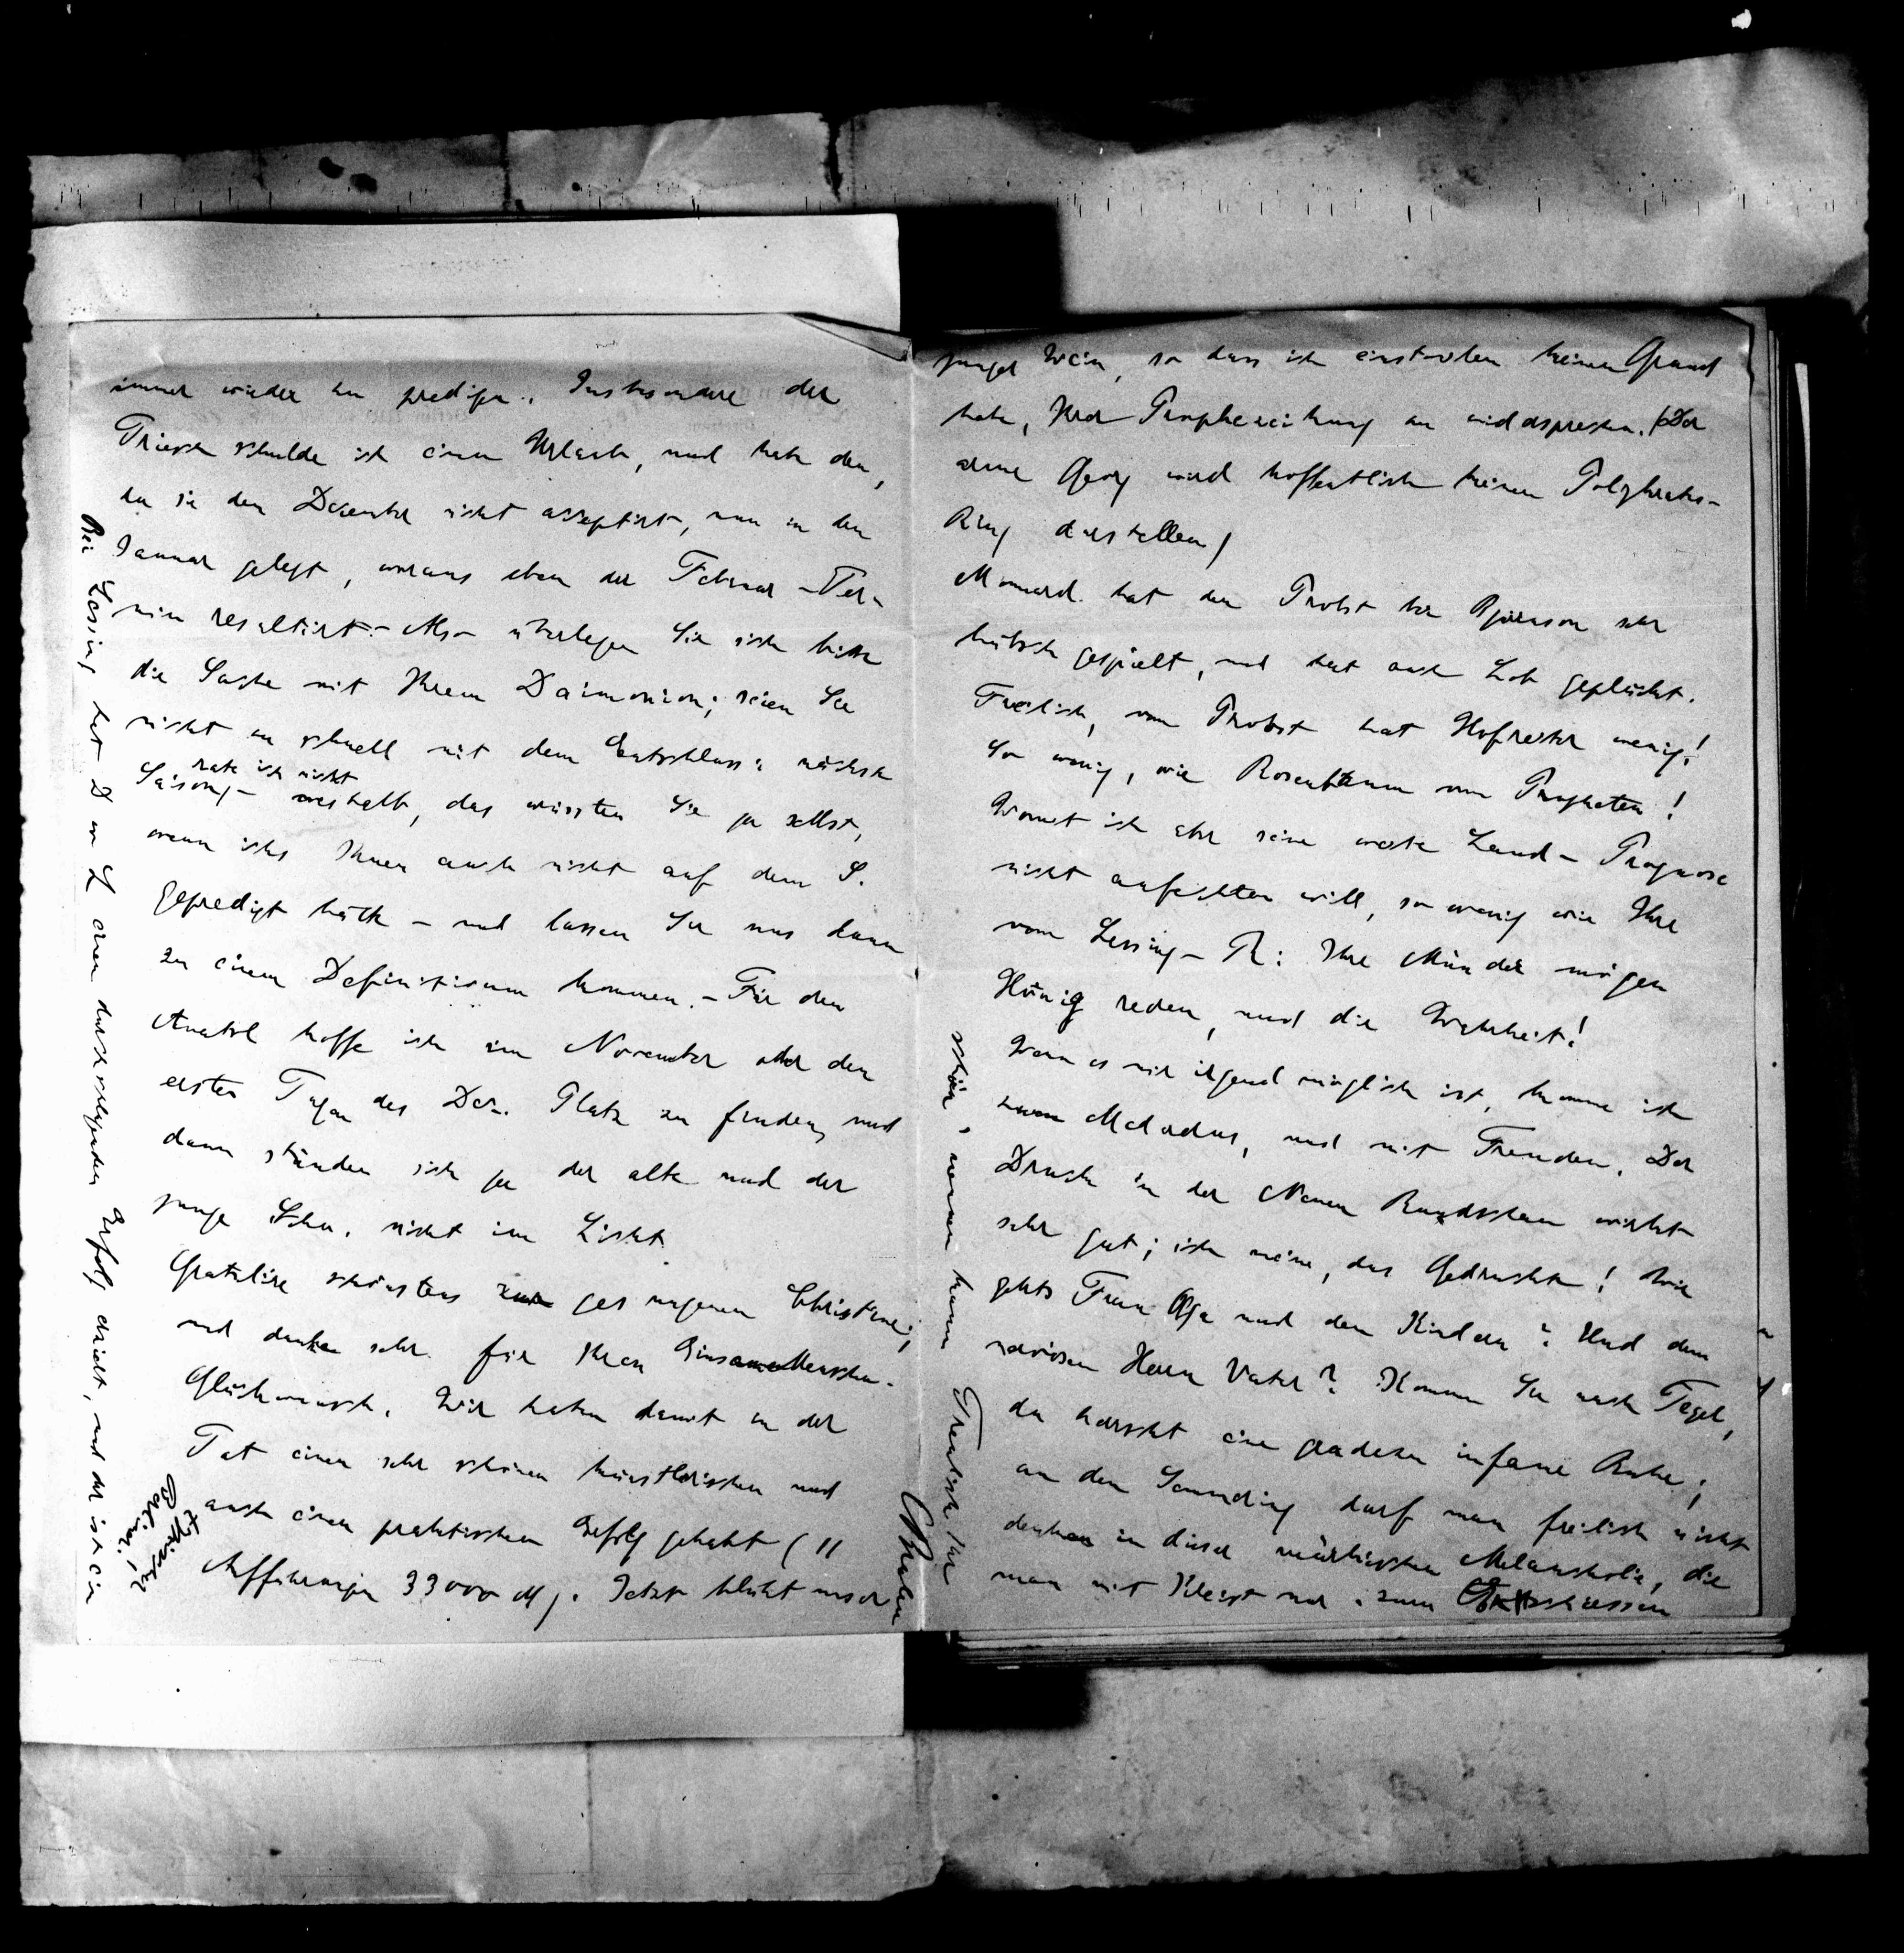 immer wieder zu predigen. Insbesondere der
Triesch schulde ich einen Urlaub, und habe den,
da sie den Dezember nicht acceptirt, nun in den
Januar gelegt, woraus eben der Februar-Ter-
min resultirt. – Also überlegen Sie sich bitte
die Sache mit Ihrem Daimonion; seien Sie
nicht zu schnell mit dem Entschluss: nächste
Saison, –
rate ich nicht
weshalb, das wüssten Sie ja selbst,
wenn ichs Ihnen auch nicht auf dem S.
gepredigt hätte – und lassen Sie uns dann
zu einem Definitivum kommen. – Für den
Anatol hoffe ich im November oder den
ersten Tagen des Dez. Platz zu finden, und
dann stünden sich ja der alte und der
junge Schn. nicht im Licht.
Gratulire schönstens zur gesungenen Christine;
und danke sehr für Ihren Einsame Menschen-
Glückwunsch. Wir haben damit in der
Tat einen sehr schönen künstlerischen und
auch einen praktischen Erfolg gehabt (11
Aufführungen 33000 M). Jetzt blüht unser
junger Wein, so dass ich einstweilen keinen Grund
habe, Ihrer Prophezeihung zu widersprechen. (Der
arme Georg wird hoffentlich keinen Polykrates-
Ring darstellen)
Monnard hat den Probst bei Björnson sehr
hübsch gespielt, und hat auch Lob gepflückt.
Freilich, vom Probst hat Hofreiter wenig!
So wenig, wie Rosenbaum vom Propheten!
Womit ich aber seine weite Land-Prognose
nicht anfechten will, so wenig wie Ihre
vom Lessing-Th: Ihre Münder mögen
Honig reden, und die Wahrheit!
Wenn es mir irgend möglich ist, komme ich
zum Medardus, und mit Freuden. Der
Druck in der Neuen Rundschau wirkt
sehr gut; ich meine, das Gedruckte! Wie
gehts Frau Olga und den Kindern? Und dem
nervösen Herrn Vater? Kommen Sie nach Tegel,
da herrscht eine geradezu infame Ruhe;
an den Semmering darf man freilich nicht
denken in dieser märkischen Melancholie, die
man mit Kleist nur zum
schön nennen kann. Treulich Ihr
Brahm
Bei Lessing hat D von L einen durchschlagenden Erfolg erzielt, und der ist ein
Berliner!